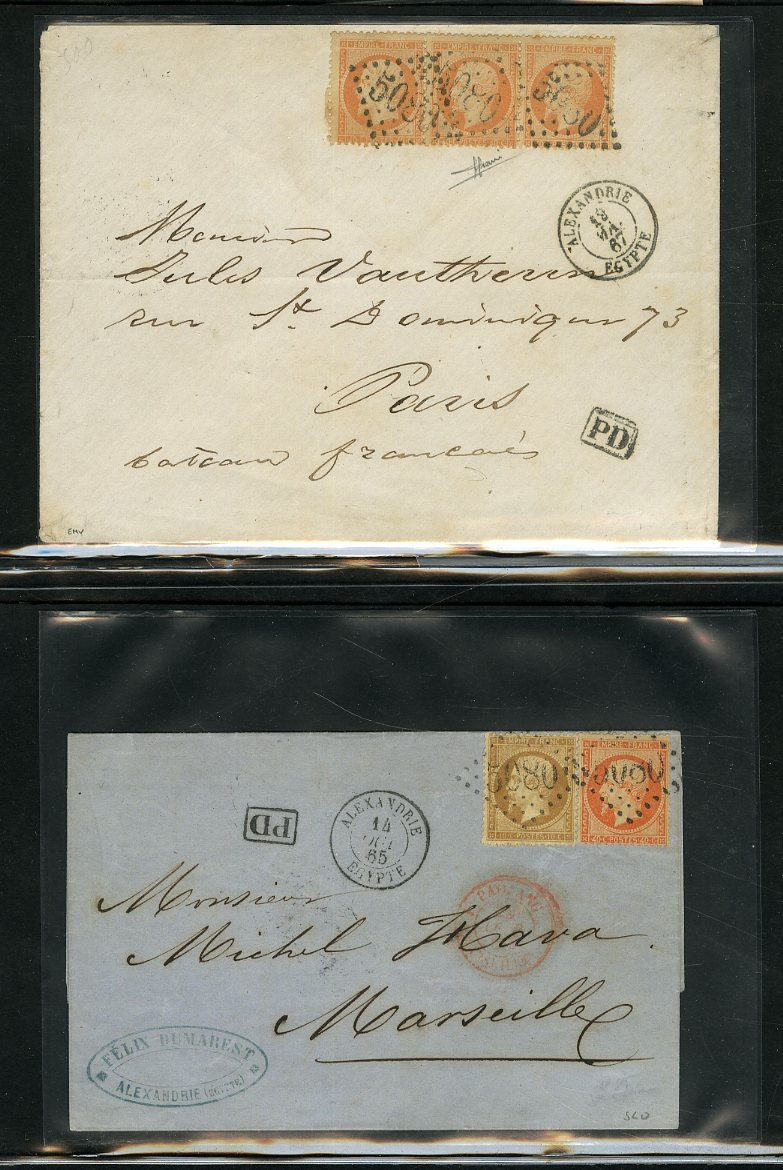 500
EMPIRE FRANC EMPIRE FRANC EMPIRE FRANC
5080 5080 5080
ALEXANDRIE
18
67
EGYPTE
Monsieur
Jules
rue St Dominique 73
Paris
PD
bateau français
EMV
EMPIRE FRANC EMPIRE FRANC
5080 5080
10 C POSTES 10 C 40 C POSTES 40 C
PD
ALEXANDRIE
14
65
EGYPTE
Monsieur
Michel
Marseille
FÉLIX DUMAREST
ALEXANDRIE (EGYPTE)